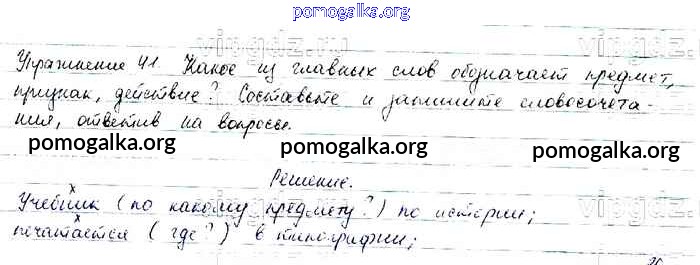 pomogalka.org
vipgdz.ru
Упражнение 41 Какое из главных слов обозначает предмет,
признак, действие? Составьте и запишите словосочета-
ния, ответив на вопросы.
pomogalka.org pomogalka.org pomogalka.org
Решение.
Учебник (по какому предмету?) по истории;
печатается (где?) в типографии;